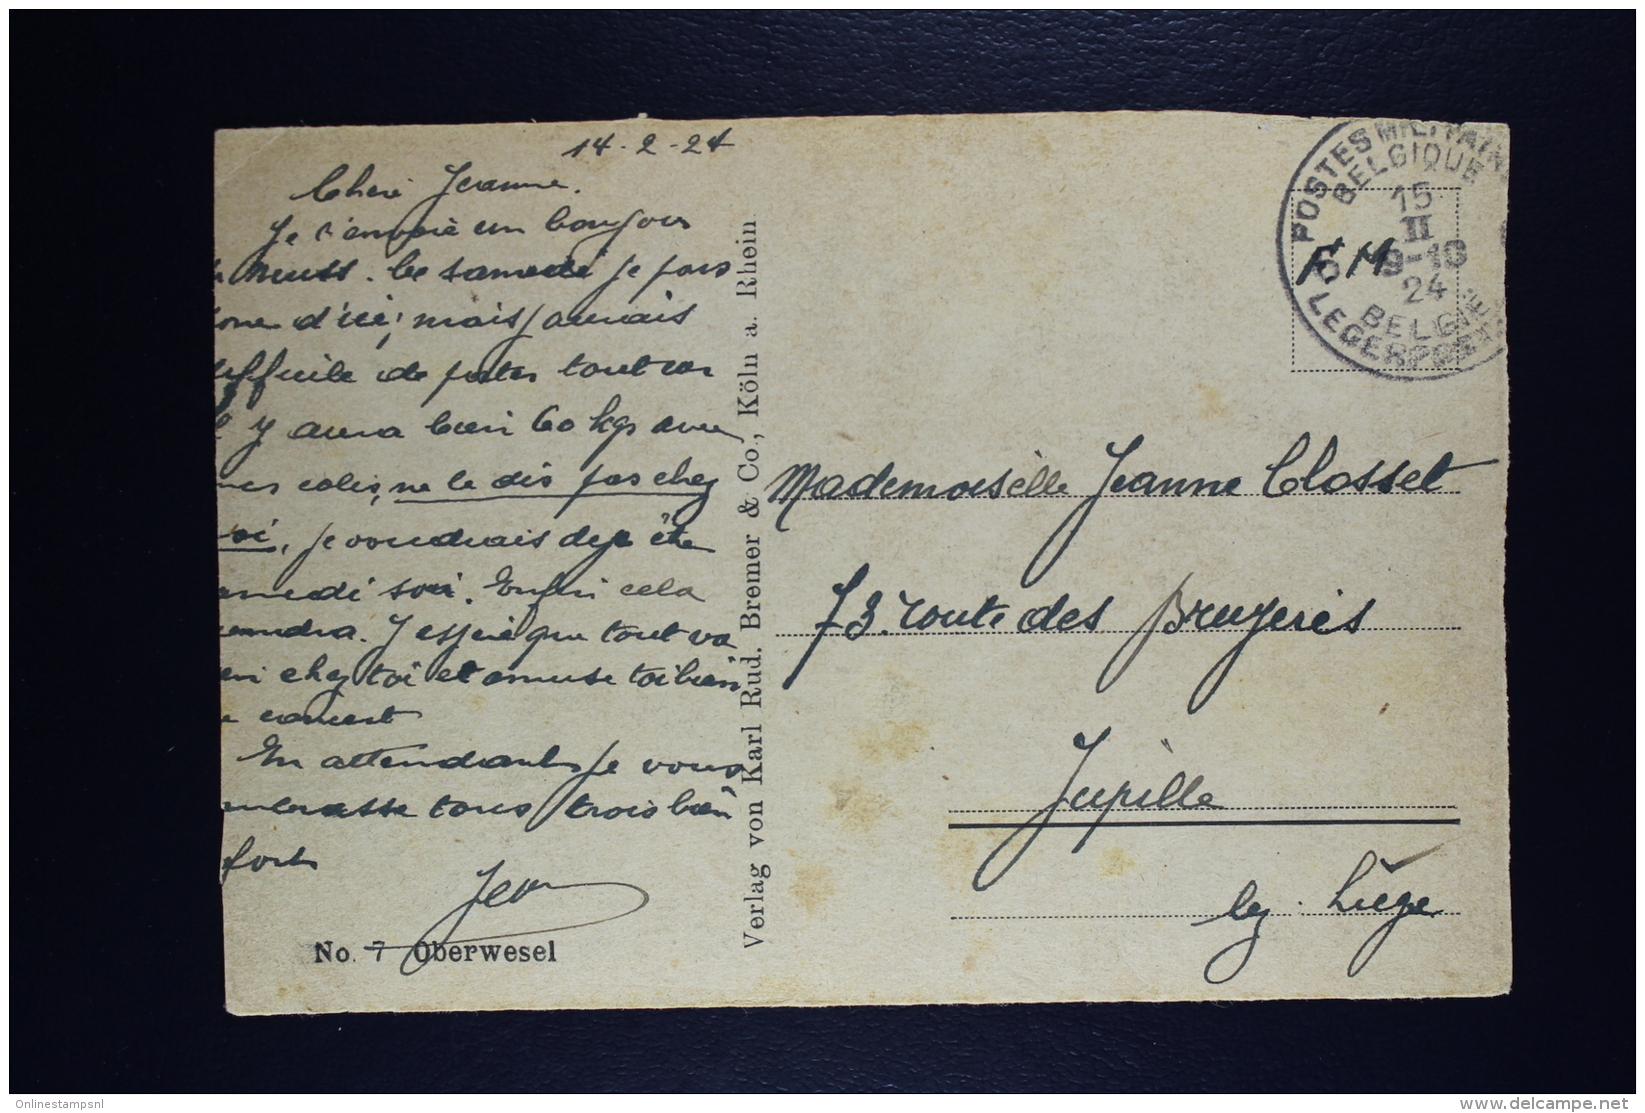 14-2-24
Cheri Jeanne.
Je t'envoie un bonjour
Neuss. Ce samedi je pars
d'ici; mais j'aurais
difficile de porter tout car
Y aura bien 60 kgs avec
mes colis, ne le dis pas chez
toi, je voudrais deja être
samedi soir. Enfin cela
viendra. J'espère que tout va
bien chez toi et amuse toi bien
concert
En attendant je vous
embrasse tous trois bien
fort
No. 7 Oberwesel
Verlag von Karl Rud. Bremer & Co., Köln a. Rhein
POSTES MILITAIRES
BELGIQUE
15
II
9-10
24
BELGIE
LEGERPOST
F M
Mademoiselle Jeanne Closset
73. route des Bruyeres
Jupille
lez. Liége
Onlinestampsnl
www.delcampe.net